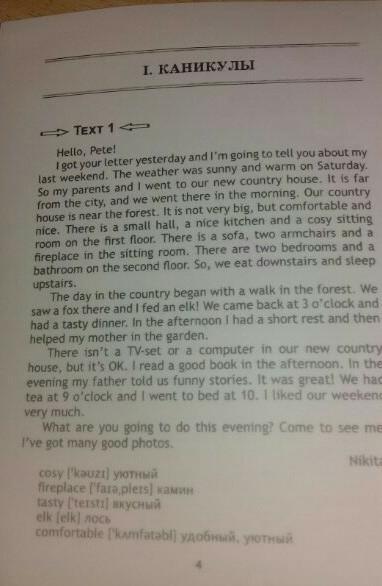 I. КАНИКУЛЫ
TEXT 1
Hello, Pete!
I got your letter yesterday and I'm going to tell you about my
last weekend. The weather was sunny and warm on Saturday.
So my parents and I went to our new country house. It is far
from the city, and we went there in the morning. Our country
house is near the forest. It is not very big, but comfortable and
nice. There is a small hall, a nice kitchen and a cosy sitting
room on the first floor. There is a sofa, two armchairs and a
fireplace in the sitting room. There are two bedrooms and a
bathroom on the second floor. So, we eat downstairs and sleep
upstairs.
The day in the country began with a walk in the forest. We
saw a fox there and I fed an elk! We came back at 3 o'clock and
had a tasty dinner. In the afternoon I had a short rest and then
helped my mother in the garden.
There isn't a TV-set or a computer in our new country
house, but it's OK. I read a good book in the afternoon. In the
evening my father told us funny stories. It was great! We had
tea at 9 o'clock and I went to bed at 10. I liked our weekend
very much.
What are you going to do this evening? Come to see me
I've got many good photos.
Nikita
cosy ['kəuzı] уютный
fireplace ['faıə,pleıs] камин
tasty ['teıstı] вкусный
elk [elk] лось
comfortable ['kʌmfətəbl] удобный, уютный
4